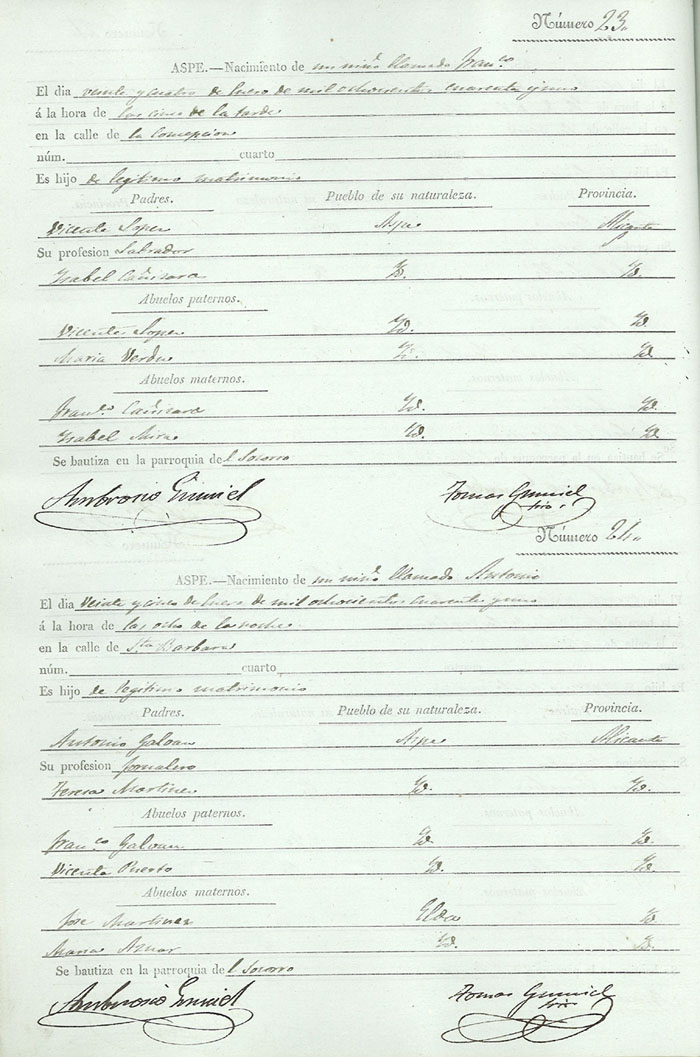 Número 23.
ASPE.—Nacimiento de un niño llamado Fran.co
El dia veinte y cuatro de Enero de mil ochocientos cuarenta y uno
á la hora de las cinco de la tarde
en la calle de la Concepcion
núm. cuarto
Es hijo de legitimo matrimonio
Padres. Pueblo de su naturaleza. Provincia.
Vicente Soper Aspe Alicante
Su profesion Labrador
Ysabel Cañizara Yd. Yd.
Abuelos paternos.
Vicente Soper Yd. Yd.
Maria Verdu Yd. Yd.
Abuelos maternos.
Fran.co Cañizara Yd. Yd.
Ysabel Mira Yd. Yd.
Se bautiza en la parroquia del Socorro
Ambrosio Tomas
Número 24.
ASPE.—Nacimiento de un niño llamado Antonio
El dia Veinte y cinco de Enero de mil ochocientos cuarenta y uno
á la hora de las ocho de la noche
en la calle de Sta. Barbara
núm. cuarto
Es hijo de legitimo matrimonio
Padres. Pueblo de su naturaleza. Provincia.
Antonio Galvan Aspe Alicante
Su profesion Jornalero
Teresa Martinez Yd. Yd.
Abuelos paternos.
Fran.co Galvan Yd. Yd.
Vicenta Puerto Yd. Yd.
Abuelos maternos.
Jose Martinez Elda Yd.
Maria Aznar Yd. Yd.
Se bautiza en la parroquia del Socorro
Ambrosio Tomas